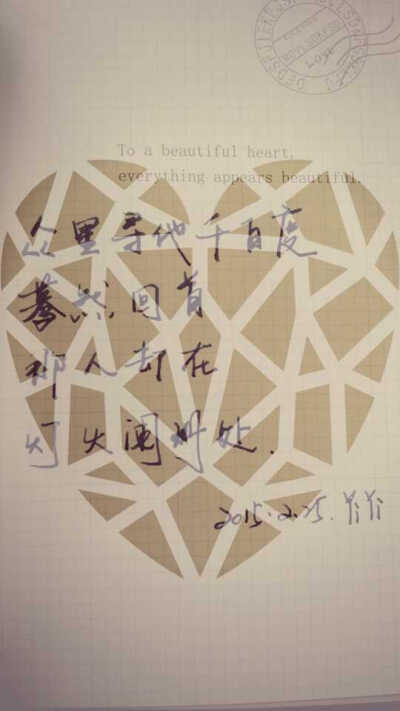 To a beautiful heart,
everything appears beautiful.
众里寻他千百度
蓦然回首
那人却在
灯火阑珊处.
2015.2.25. YiYi